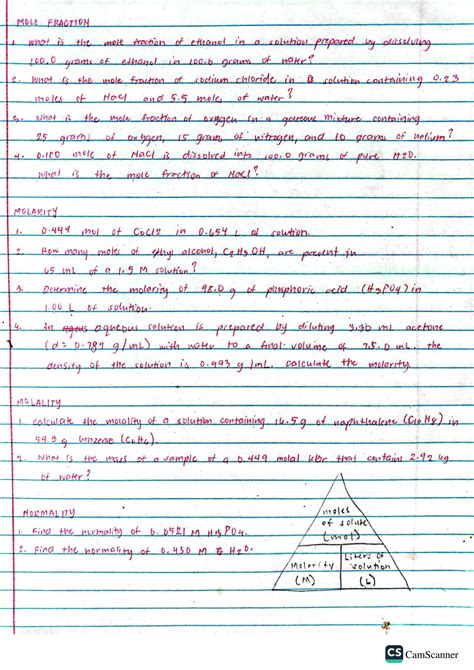 MOLE FRACTION
1. What is the mole fraction of ethanol in a solution prepared by dissolving
100.0 grams of ethanol in 100.0 grams of water?
2. What is the mole fraction of sodium chloride in a solution containing 0.23
moles of NaCl and 5.5 moles of water?
3. What is the mole fraction of oxygen in a gaseous mixture containing
25 grams of oxygen, 15 grams of nitrogen, and 10 grams of helium?
4. 0.100 mole of NaCl is dissolved into 100.0 grams of pure H2O.
What is the mole fraction of NaCl?
MOLARITY
1. 0.444 mol of CoCl2 in 0.654 L of solution.
2. How many moles of ethyl alcohol, C2H5OH, are present in
65 mL of a 1.5 M solution?
3. Determine the molarity of 98.0 g of phosphoric acid (H3PO4) in
1.00 L of solution.
4. An aqueous solution is prepared by diluting 3.30 mL acetone
(d = 0.789 g/mL) with water to a final volume of 75.0 mL. The
density of the solution is 0.993 g/mL. calculate the molarity.
MOLALITY
1. calculate the molality of a solution containing 16.5 g of naphthalene (C10H8) in
54.3 g benzene (C6H6).
2. What is the mass of a sample of a 0.449 molal KBr that contains 2.92 kg
of water?
NORMALITY
1. Find the normality of 0.0521 M H3PO4.
2. Find the normality of
moles
of solute
(mol)
Molarity
(M)
Liters of
solution
(L)
CS CamScanner